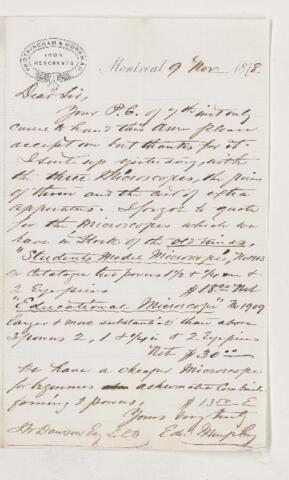 FROTHINGHAM & WORKMAN
IRON
MERCHANTS
Montreal 9 Nov 1878.
Dear Sir,
Your P.C. of 7th inst only
came to hand this a.m. please
accept our best thanks for it.
I sent up yesterday, with
the three Microscopes, the prices
of them and the cost of extra
apparatus. I forgot to quote
for the Microscopes which we
have in Stock of the old kinds,
"Students Model Microscope",
in Catalogue two powers 1/2 & 1/4 in &
2 Eye-pieces $18.00 Net
"Educational Microscope" No 1909
larger & more substantial than above
3 powers 2, 1 & 1/4 in & 2 Eye pieces
Net $30.00
We have a cheaper Microscope
for beginners achromatic Combin
forming 2 powers, $13.50
Yours very truly
J W Dawson Esq LLD Edw. Murphy